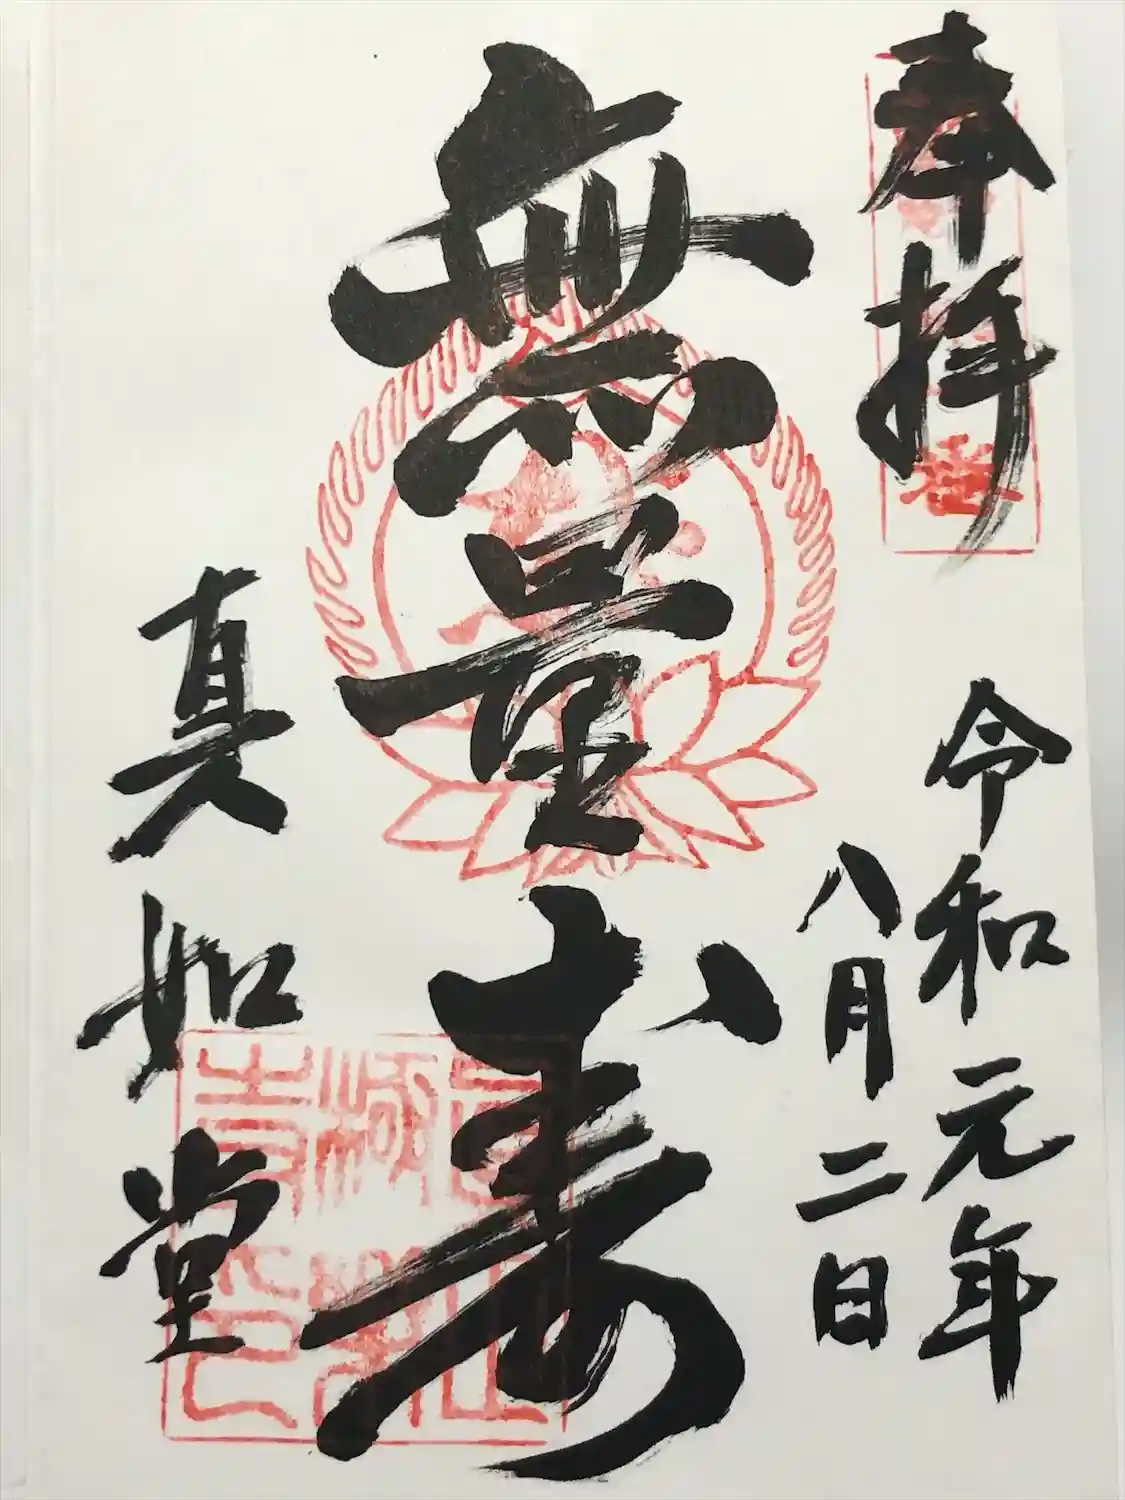 奉拝
令和元年
八月二日
無量寿
真如堂